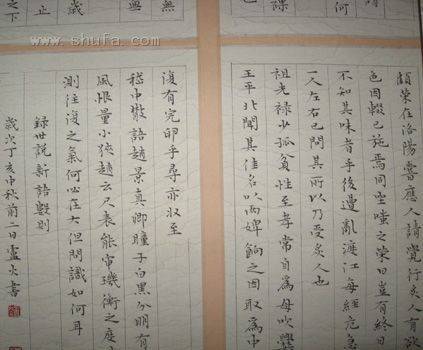 顧榮在洛陽嘗應人請覺行炙人有欲
色因輟己施焉同坐嗤之榮曰豈有終日
不知其味者乎後遭亂渡江每經危急
一人左右已問其所以乃受炙人也
祖光祿少孤貧性至孝常自為母吹爨
王平北聞其佳名以兩婢餉之因取為中
復有完卵乎尋亦收至
嵇中散語趙景真卿瞳子白黑分明有
風恨量小狹趙云尺表能審璣衡之度
測往復之氣何必在大但問識如何耳
錄世說新語數則
歲次丁亥中秋前二日盧火書
www.shufa.com